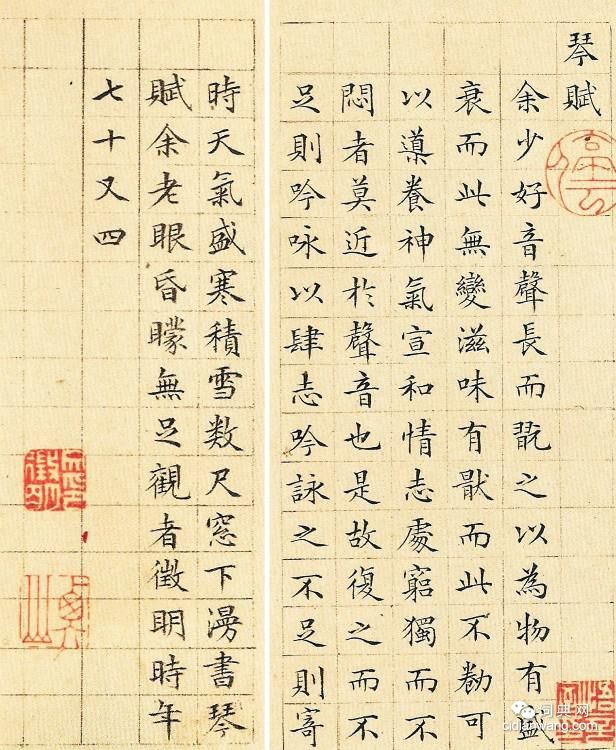 琴賦
余少好音聲長而翫之以為物有盛
衰而此無變滋味有猒而此不勌可
以導養神氣宣和情志處窮獨而不
悶者莫近於聲音也是故復之而不
足則吟咏以肆志吟詠之不足則寄
時天氣盛寒積雪数尺窓下漫書琴
賦余老眼昏矇無足觀者徵明時年
七十又四
词典网
cidianwang.com